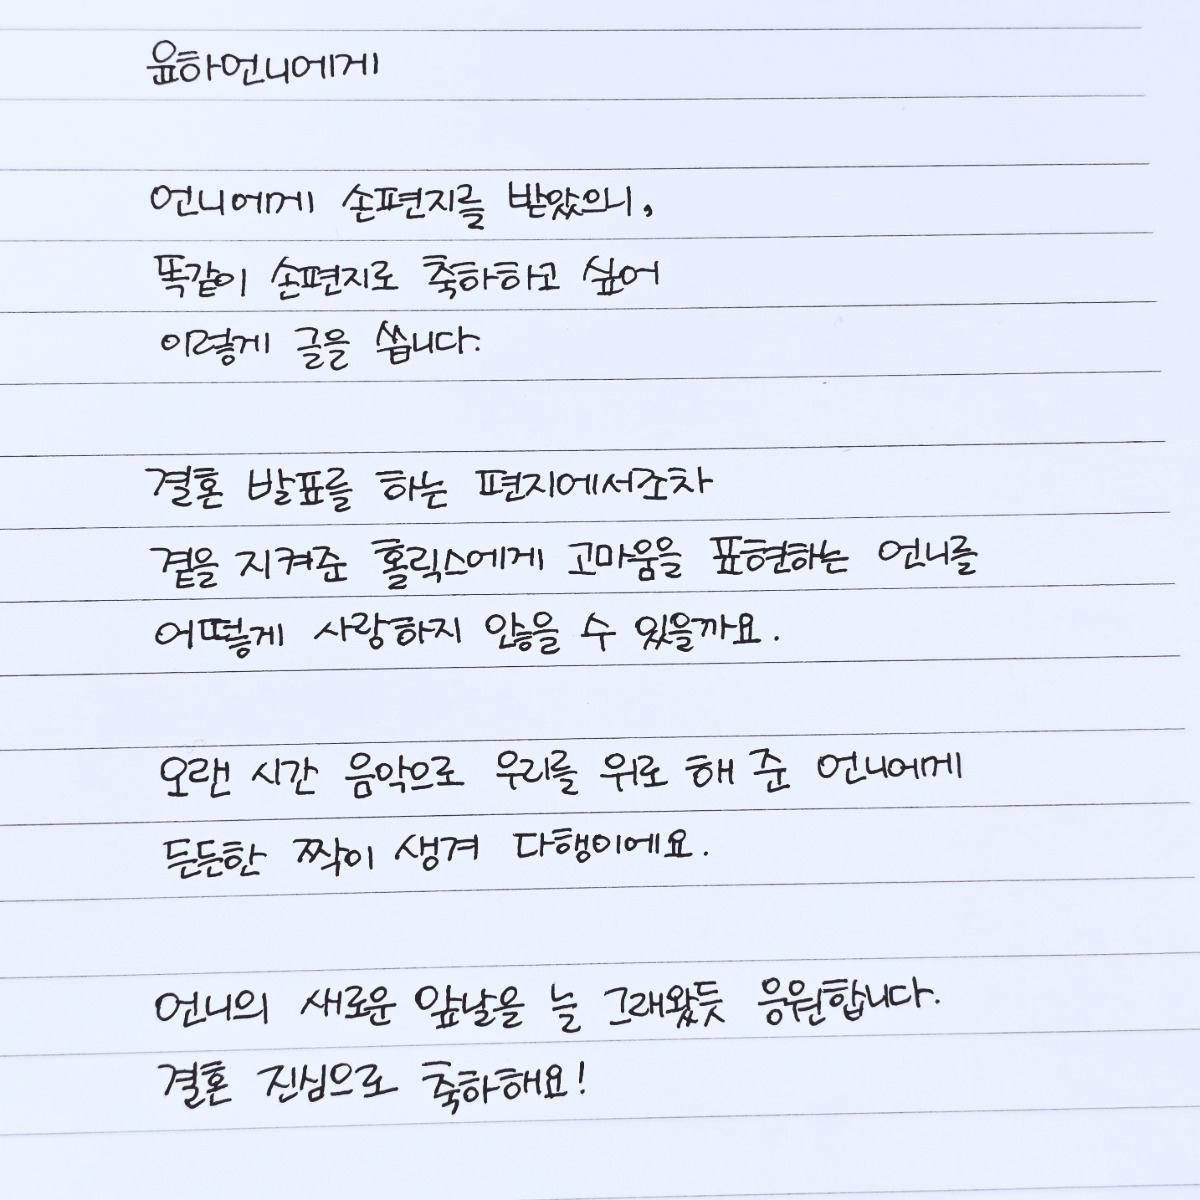 윤하언니에게
언니에게 손편지를 받았으니,
똑같이 손편지로 축하하고 싶어
이렇게 글을 씁니다.
결혼 발표를 하는 편지에서조차
곁을 지켜준 홀릭스에게 고마움을 표현하는 언니를
어떻게 사랑하지 않을 수 있을까요.
오랜 시간 음악으로 우리를 위로 해 준 언니에게
든든한 짝이 생겨 다행이에요.
언니의 새로운 앞날을 늘 그래왔듯 응원합니다.
결혼 진심으로 축하해요!